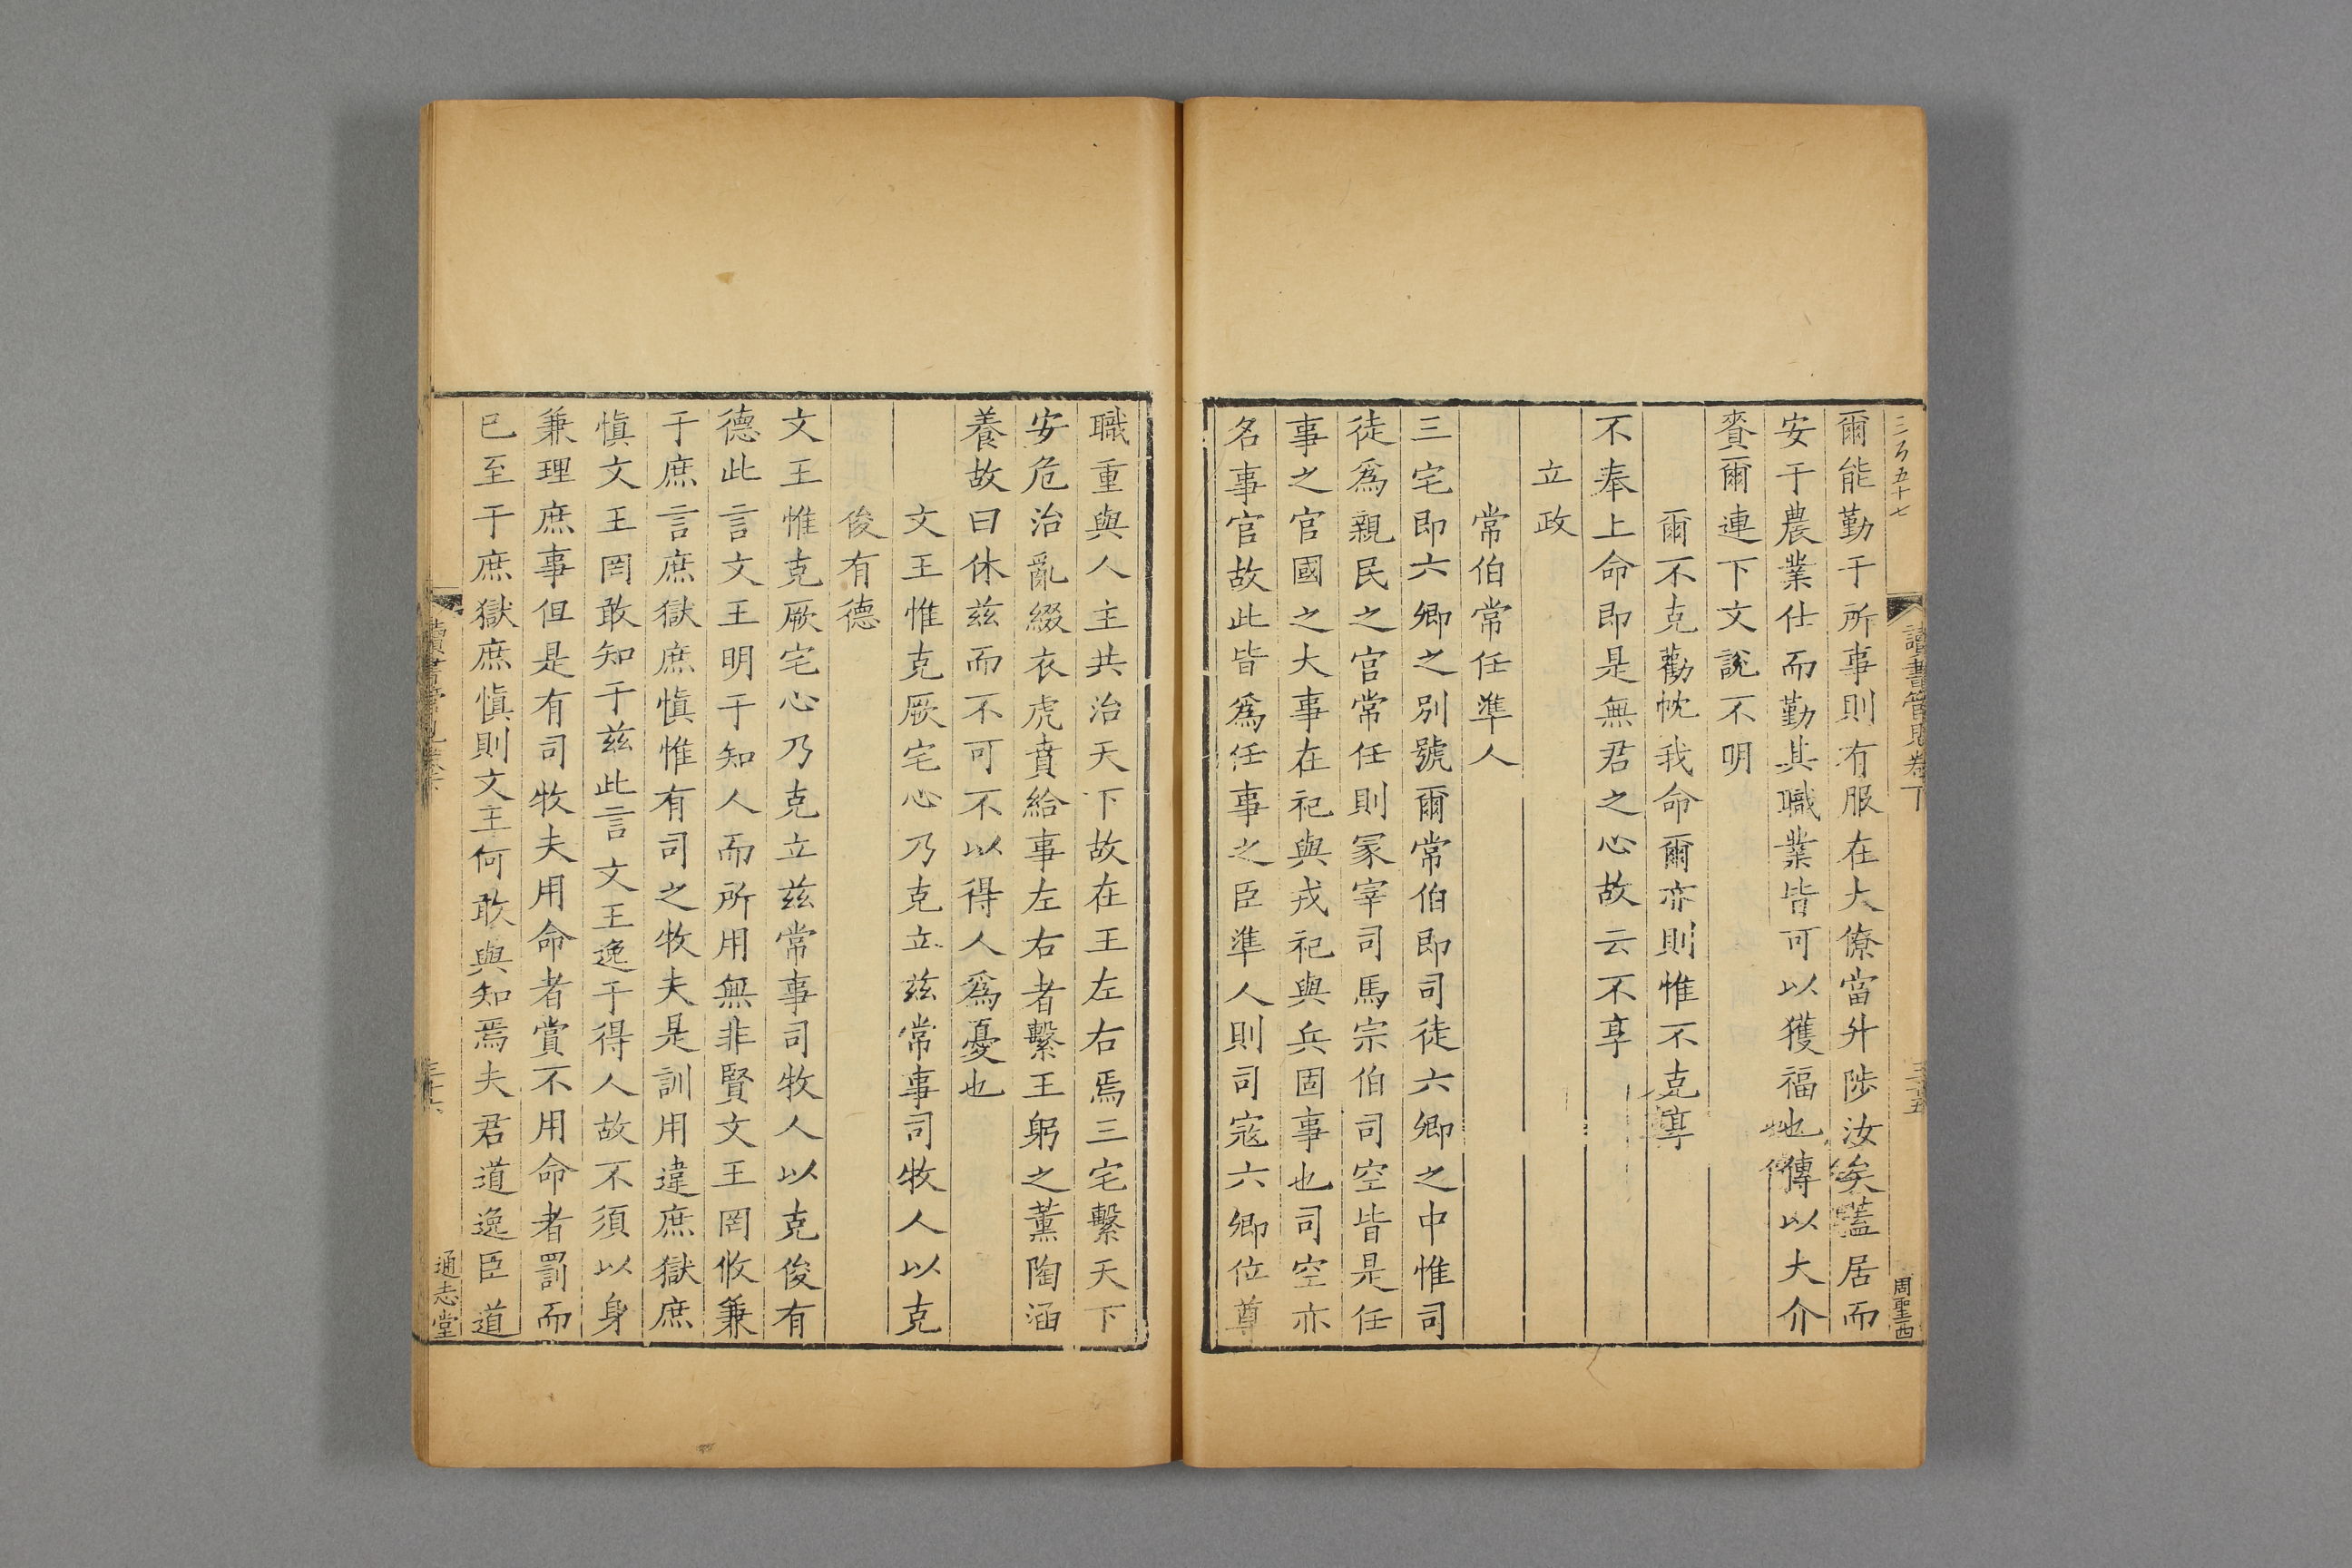 三百五十七
讀書管見卷下
三十五
周聖西
爾能勤于所事則有服在大僚當升陟汝矣蓋居而
安于農業仕而勤其職業皆可以獲福也傳以大介
賚爾連下文說不明
爾不克勸忱我命爾亦則惟不克享
不奉上命即是無君之心故云不享
立政
常伯常任準人
三宅即六卿之別號爾常伯即司徒六卿之中惟司
徒爲親民之官常任則冢宰司馬宗伯司空皆是任
事之官國之大事在祀與戎祀與兵固事也司空亦
名事官故此皆爲任事之臣準人則司寇六卿位尊
職重與人主共治天下故在王左右焉三宅繫天下
安危治亂綴衣虎賁給事左右者繫王躬之薰陶涵
養故曰休茲而不可不以得人爲憂也
文王惟克厥宅心乃克立茲常事司牧人以克
俊有德
文王惟克厥宅心乃克立茲常事司牧人以克俊有
德此言文王明于知人而所用無非賢文王罔攸兼
于庶言庶獄庶慎惟有司之牧夫是訓用違庶獄庶
慎文王罔敢知于茲此言文王逸于得人故不須以身
兼理庶事但是有司牧夫用命者賞不用命者罰而
已至于庶獄庶慎則文王何敢與知焉夫君道逸臣道
讀書管見卷下
三十六
通志堂